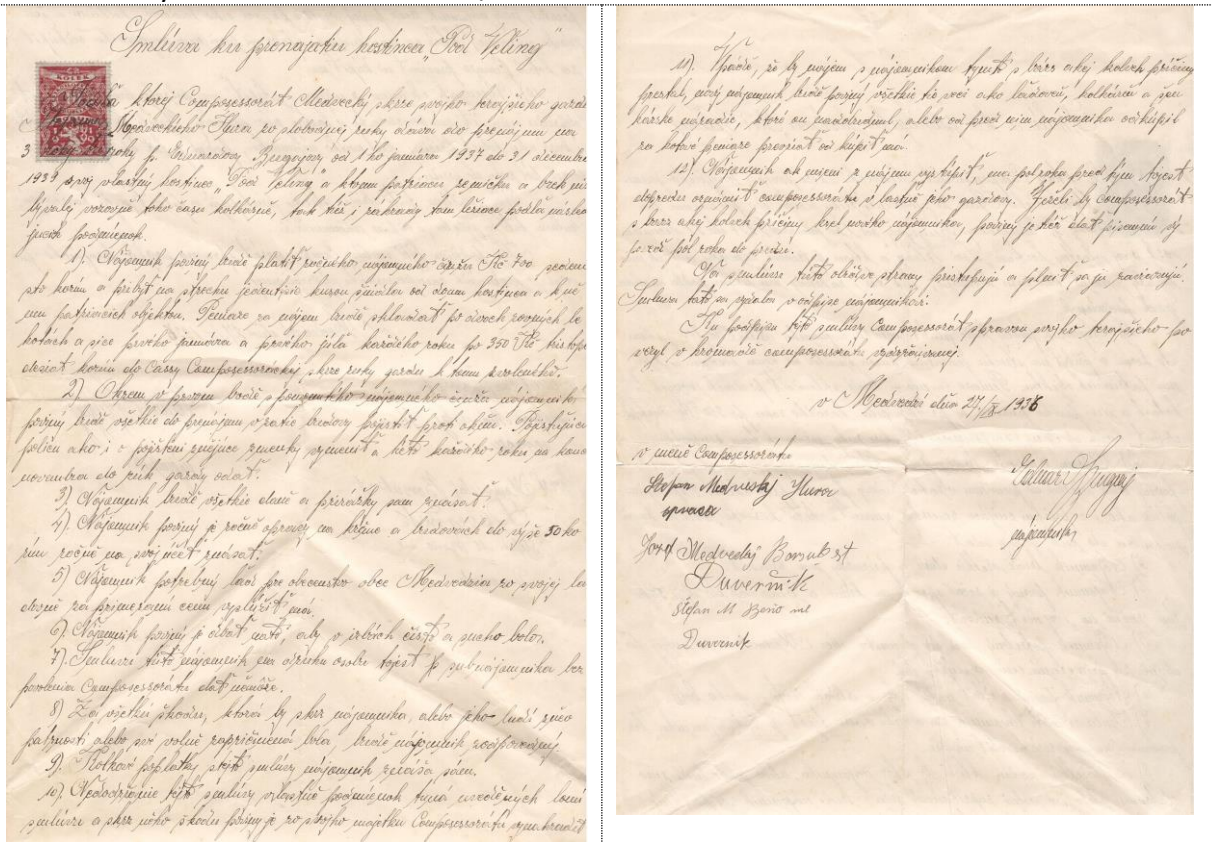 Smlúva ku prenajatiu hostinca „Pod Veling"
KOLEK
ktorej Composessorát Medvecký skrze svojho terajšieho gazdu
Medveckého Hura zo slobodnej ruky dáva do prenájmu na
3 roky p. Edmundovy Bugajovy od 1ho januára 1937 do 31 decembra
1939 svoj vlastný hostinec „Pod Veling" a ktram patriacu zemičku a brek
bývalej vozovne toho času kolkárně, tak tiež i záhrady tam ležiace podľa násled
jucich podmienok.
1). Nájomník povinný bude platiť ročného nájomného činžu Kč 700 sedem
sto korún a pribyť na strechu jedentisíc kusov šindľa od domu hostinca a k ně
mu patriacich objektov. Peniaze za nájem bude skladať po dvoch rovných le
hotách a síce prvého januára a prvého júla každého roku po 350 Kč tristopä
desiat korún do Cassy Composessoráckej skrze ruky gazdu k tomu zvoleného.
2). Okrem v prvom bode spomenutého nájomného činžu nájomník
povinný bude všetkie do prenájmu vzatie budovy pojistiť proti ohňu. Pojisťujúcu
policu ako i o pojištění znějúce zmenky vymeniť a tieto každého roku na konci
novembra do rúk gazdy oddať.
3). Nájomník bude všetkie daně a prirážky sam znášať.
4). Nájomník povinný je ročně opravy na kríne a budovách do výše 50 ko
rún ročně na svoj účet znášať.
5). Nájomník potrebný ľad pre obecenstvo obce Medvedzia zo svojej ľa
dovne za primeranú cenu vyslúžiť má.
6). Nájomník povinný je dbať nato, aby v izbách čisto a sucho bolo.
7). Smluvu túto nájomník na druhu osobu tojest p. subnájomníka bez
povolenia Composessorátu dať nemôže.
8) Za všetkú škodu, ktorá by skrz nájomníka, alebo jeho ľudí z neo
patrnosti alebo své volně zapríčinená bola, bude nájomník zodpovedný.
9). Kolkové poplatky stejto smlúvy nájomník znáša sám.
10). Nedodržanie tejto smlúvy vlastně podmienok tuná uvedených lomí
smlúvu a skrz něho škodu povinný je zo svojho majetku Composessorátu vynahradiť
11). Vpadě, že by nájem s nájomníkom tymto s bárz akej kolvek príčiny
prestal, nový nájomník bude povinný všetkie tie veci ako ľadovú, kolkárnu a šen
kárske náradie, ktoré on nadobudnul, alebo od pred ním nájomníka odkúpil
za hotové peniaze prevziať od kúpiť má.
12). Nájomník ak mieni z nájmu vystúpiť, má polroka pred tým tojest
dopredu oznámiť composessorátu v lastně jeho gazdovy. Jestli by composessorát
s bars akej kolvek príčiny krel nového nájomníka, povinný je tiež dať písemní vý
poveď pol roka do predu.
Na smlúvu túto obidve strany pristupujú a plniť sa ju zaväzujú.
Smluva táto sa vydala v odpise nájomníkovi.
Ku podpísu tejto smlúvy Composessorát spravou svojho terajšieho po
veryl v hromadě composessorátu vydržiavanej.
v Medvedzí dňa 27/IX 1936
v mene Composessorátu
Štefan Medvecký Hura
spravca
Jozef Medvecký Borsuk st
Duverník
Štefan M Beňo ml
Duverník
Edmund Bugaj
nájomník